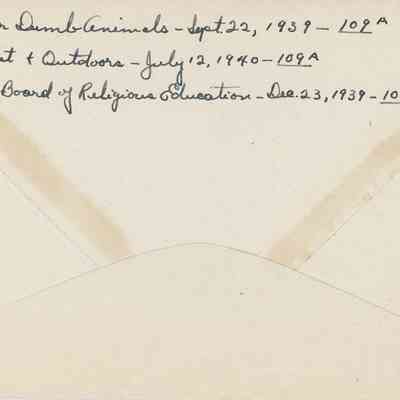 r Dumb Animals - Sept. 22, 1939 - 109A
t & Outdoors - July 12, 1940 - 109A
Board of Religious Education - Dec. 23, 1939 - 10